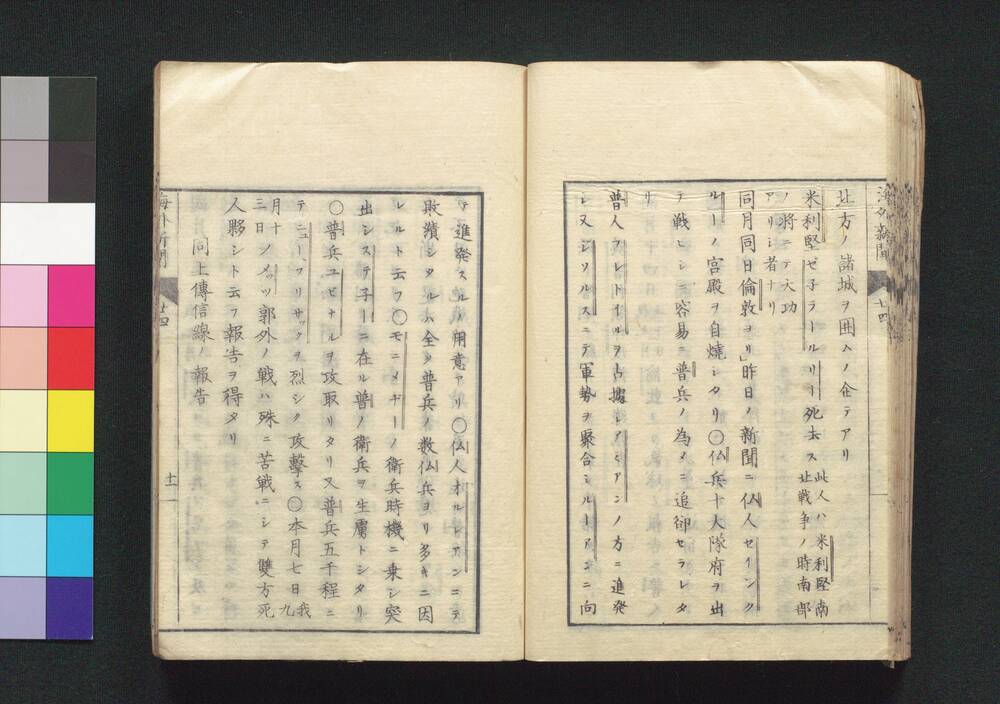 海外新聞 廿四
北方ノ諸城ヲ囲ムノ企テアリ
米利堅ゼ子ラールリー死去ス此人ハ米利堅南北戦争ノ時南部
ノ将ニテ大功アリシ者ナリ
同月同日倫敦ヨリ昨日ノ新聞ニ仏人セインク
ルーノ宮殿ヲ自焼シタリ〇仏兵十大隊府ヲ出
テ戦ヒシニ容易ニ普兵ノ為メニ追卻セラレタ
リ
普人フレドイルヲ占拠レアミアンノ方ニ進発
シ又ソルスニテ軍勢ヲ聚合シルーアンニ向
テ進発スルノ用意アリ〇仏人オルレアンニテ
敗績シタルハ全ク普兵ノ数仏兵ヨリ多キニ因
レルト云フ〇モニメヂーノ衛兵時機ニ乗シ突
出システ子ーニ在ル普ノ衛兵ヲ生虜トシタリ
〇普兵ユビナルヲ攻取リタリ又普兵五千程ニ
テニューフリサックヲ烈シク攻撃ス〇本月七日我九
月十三日ノメッツ郭外ノ戦ハ殊ニ苦戦ニシテ雙方死
人夥シト云フ報告ヲ得タリ
同上傳信線ノ報告
海外新聞 廿四 十一